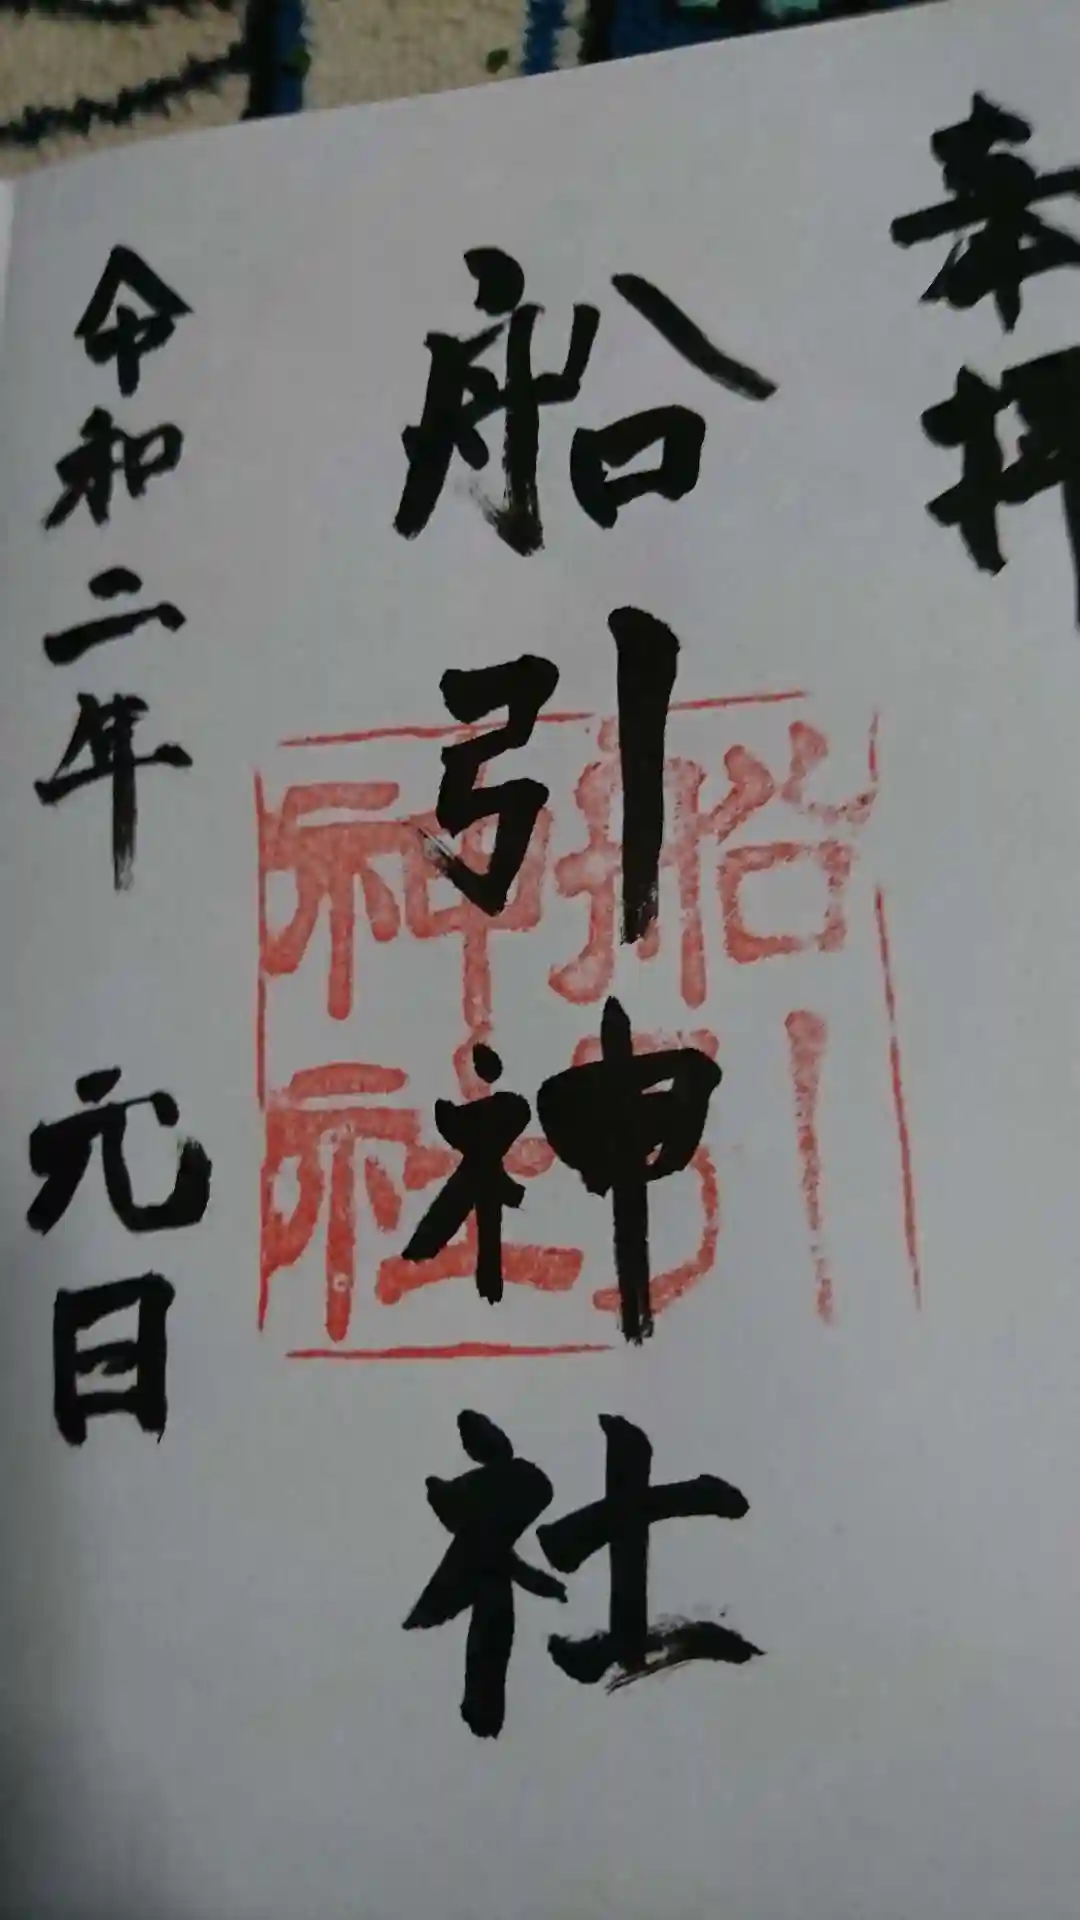 奉拝
船引神社
船引
神社
令和二年 元旦